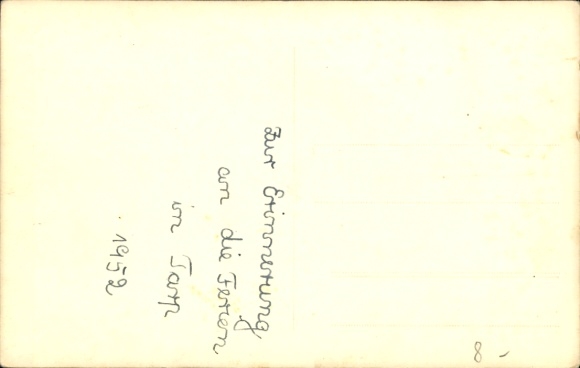 Zur Erinnerung
an die Ferien
in Tarp
1952
8